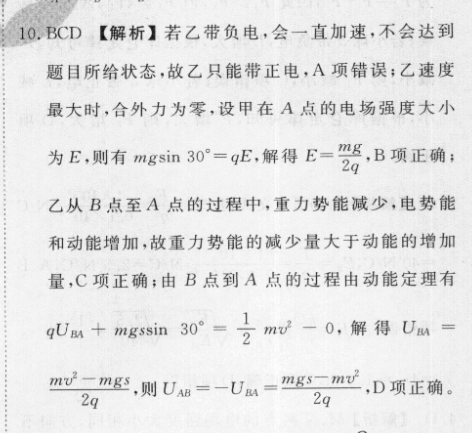 10. BCD 【解析】若乙带负电,会一直加速,不会达到
题目所给状态,故乙只能带正电,A 项错误;乙速度
最大时,合外力为零,设甲在 A 点的电场强度大小
为 E,则有 mgsin 30°=qE,解得 E=mg/2q,B 项正确;
乙从 B 点至 A 点的过程中,重力势能减少,电势能
和动能增加,故重力势能的减少量大于动能的增加
量,C 项正确;由 B 点到 A 点的过程由动能定理有
qU_BA + mgssin 30° = 1/2 mv² − 0, 解得 U_BA =
mv²−mgs/2q,则 U_AB=−U_BA=mgs−mv²/2q,D 项正确。